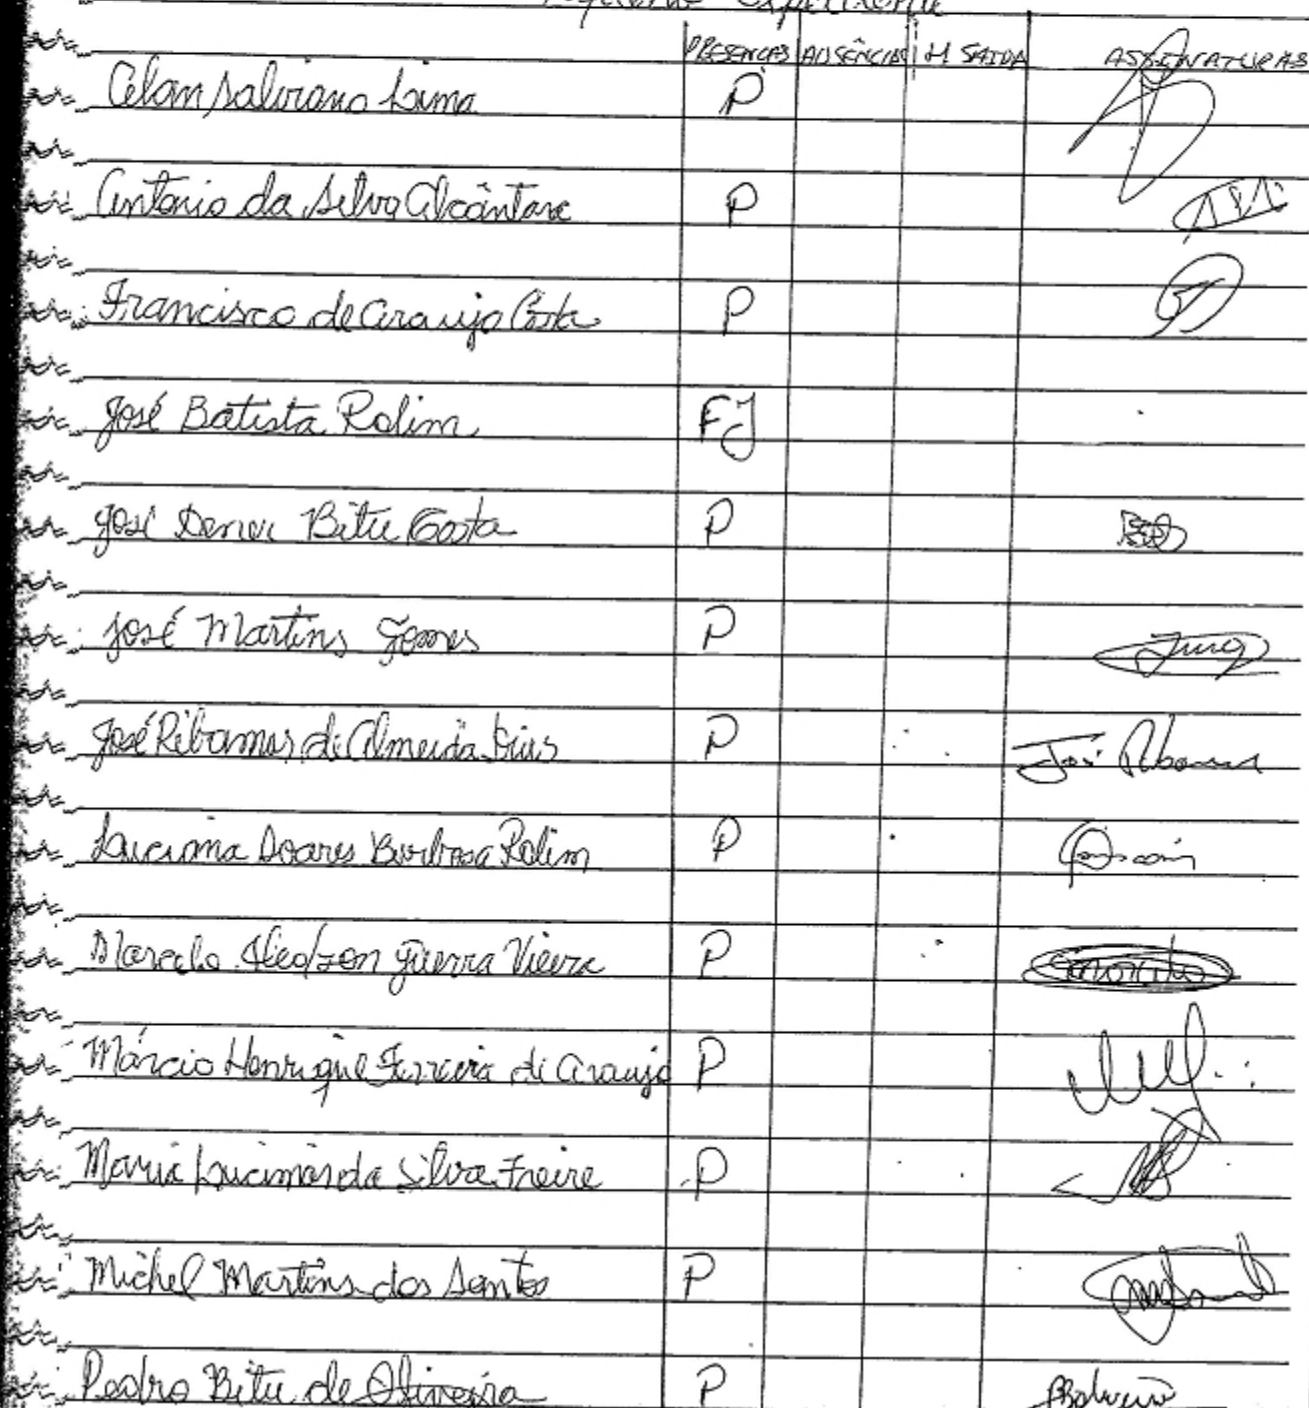 Pequeno Expediente
PRESENÇAS AUSÊNCIAS H SAIDA ASSINATURAS
Salviano Lima P
Antonio da Silva Alcântara P
Francisco de Araujo Costa P
José Batista Rolim FJ
José Bitu Costa P
José Martins Gomes P
José Ribamar de Almeida Dias P José
Luciana Soares Barbosa Rolim P
Marcelo Guerra Vieira P Marcelo
Márcio Henrique Ferreira de Araujo P
Maria Lucimar da Silva Freire P
Michel Martins dos Santos P
Pedro Bitu de Oliveira P